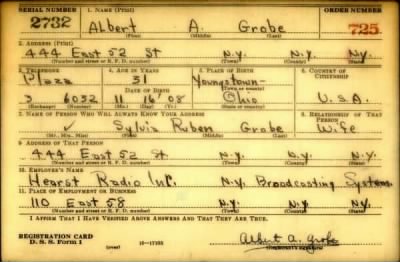 SERIAL NUMBER 1. NAME (Print) ORDER NUMBER
2732 Albert A. Grobe 725
(First) (Middle) (Last)
2. ADDRESS (Print)
444 East 52 St N.Y. N.Y. N.Y.
(Number and street or R. F. D. number) (Town) (County) (State)
3. TELEPHONE 4. AGE IN YEARS 5. PLACE OF BIRTH 6. COUNTRY OF CITIZENSHIP
Plaza 31 Youngstown-
DATE OF BIRTH (Town or county)
3 6052 11 16 08 Ohio U.S.A.
(Exchange) (Number) (Mo.) (Day) (Yr.) (State or country)
7. NAME OF PERSON WHO WILL ALWAYS KNOW YOUR ADDRESS 8. RELATIONSHIP OF THAT PERSON
Sylvia Ruben Grobe Wife
(Mr., Mrs., Miss) (First) (Middle) (Last)
9. ADDRESS OF THAT PERSON
444 East 52 St. N.Y. N.Y. N.Y.
(Number and street or R. F. D. number) (Town) (County) (State)
10. EMPLOYER'S NAME
Hearst Radio Inc. N.Y. Broadcasting System
11. PLACE OF EMPLOYMENT OR BUSINESS
110 East 58 N.Y. N.Y.
(Number and street or R. F. D. number) (Town) (County) (State)
I AFFIRM THAT I HAVE VERIFIED ABOVE ANSWERS AND THAT THEY ARE TRUE.
REGISTRATION CARD
D. S. S. Form 1 (over) Albert A. Grobe